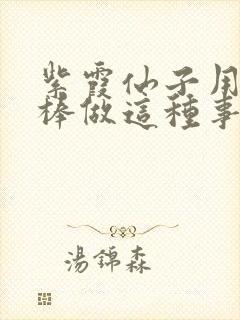 紫霞仙子用
棒做這種事
湯錦森